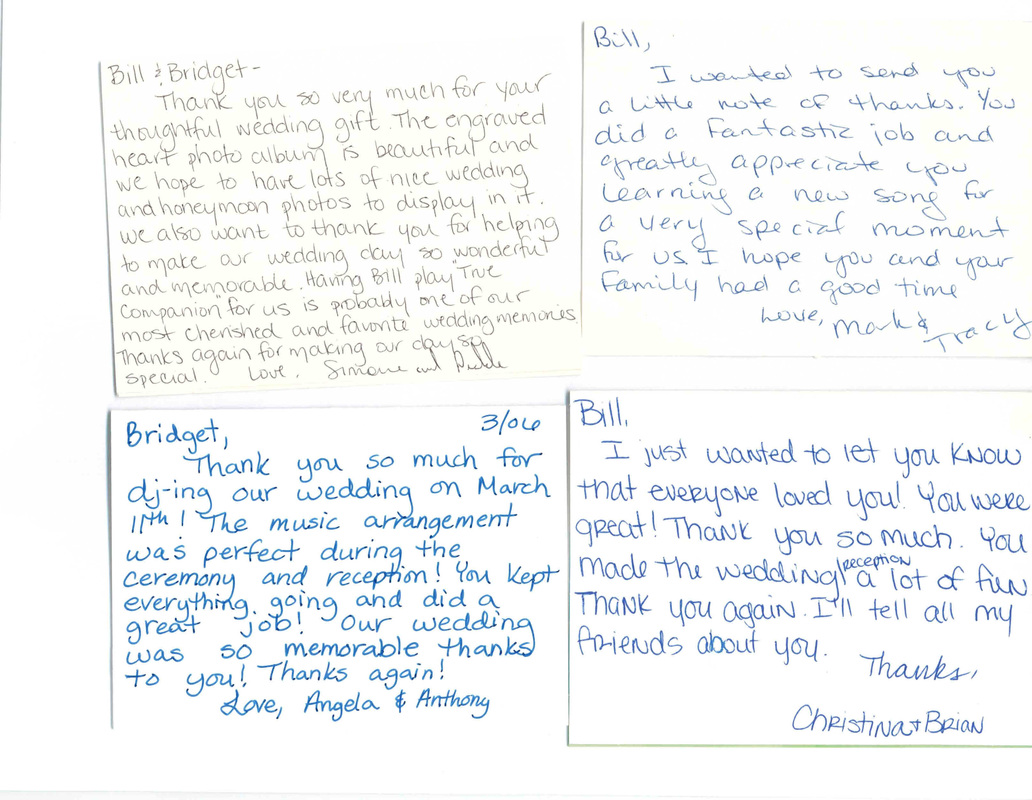 Bill & Bridget -
Thank you so very much for your
thoughtful wedding gift. The engraved
heart photo album is beautiful and
we hope to have lots of nice wedding
and honeymoon photos to display in it.
We also want to thank you for helping
to make our wedding day so wonderful
and memorable. Having Bill play "True
Companion" for us is probably one of our
most cherished and favorite wedding memories
Thanks again for making our day so
special. Love, Simone and
Bill,
I wanted to send you
a little note of thanks. You
did a fantastic job and
greatly appreciate you
learning a new song for
a very special moment
for us. I hope you and your
family had a good time
Love, Mark &
Tracy
3/06
Bridget,
Thank you so much for
dj-ing our wedding on March
11th! The music arrangement
was perfect during the
ceremony and reception! You kept
everything going and did a
great job! Our wedding
was so memorable thanks
to you! Thanks again!
Love, Angela & Anthony
Bill,
I just wanted to let you know
that everyone loved you! You were
great! Thank you so much. You
made the wedding reception a lot of fun
Thank you again. I'll tell all my
friends about you.
Thanks,
Christina + Brian